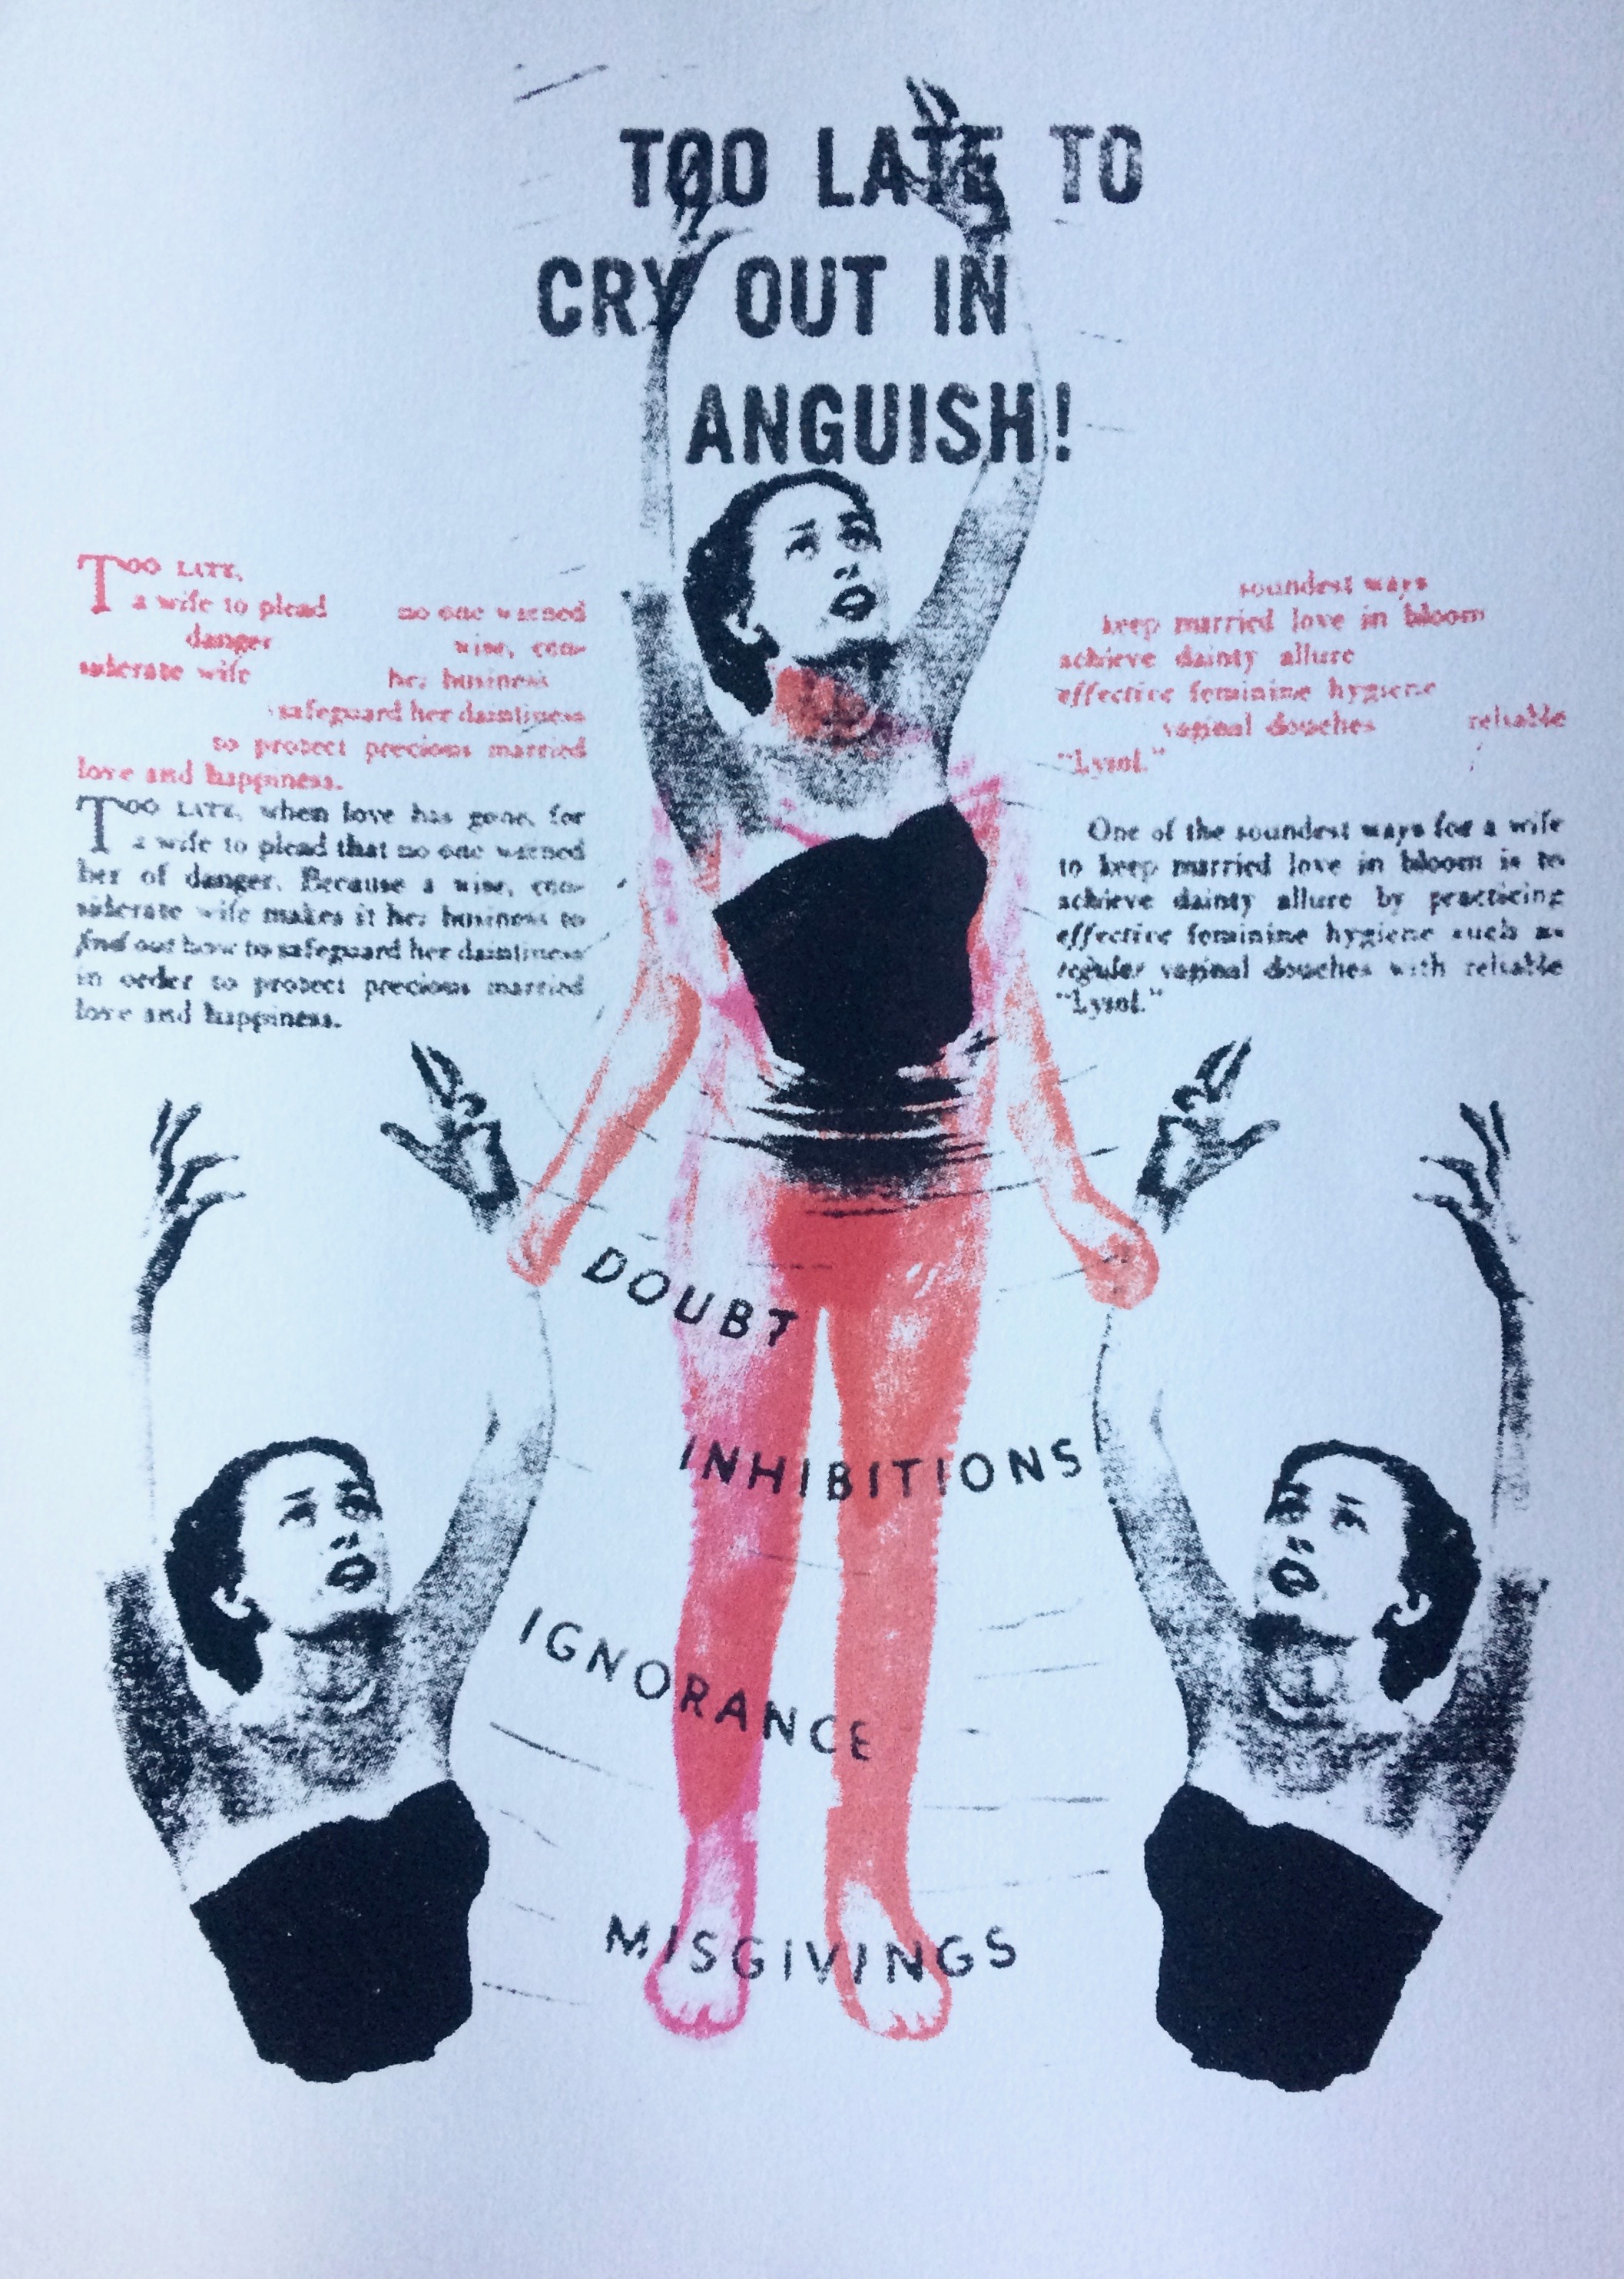 TOO LATE TO
CRY OUT IN
ANGUISH!
TOO LATE,
a wife to plead no one warned
danger wise, con-
siderate wife her business
safeguard her daintiness
to protect precious married
love and happiness.
TOO LATE, when love has gone, for
a wife to plead that no one warned
her of danger. Because a wise, con-
siderate wife makes it her business to
find out how to safeguard her daintiness
in order to protect precious married
love and happiness.
soundest ways
keep married love in bloom
achieve dainty allure
effective feminine hygiene
vaginal douches reliable
"Lysol."
One of the soundest ways for a wife
to keep married love in bloom is to
achieve dainty allure by practicing
effective feminine hygiene such as
regular vaginal douches with reliable
"Lysol."
DOUBT
INHIBITIONS
IGNORANCE
MISGIVINGS